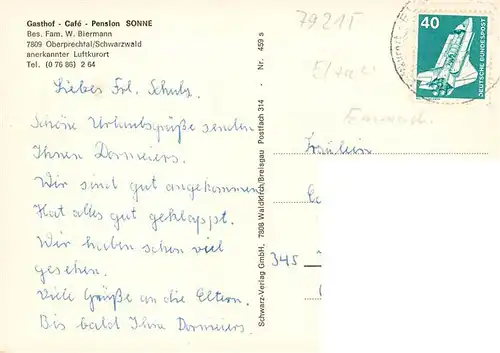 Gasthof - Café - Pension SONNE
Bes. Fam. W. Biermann
7809 Oberprechtal/Schwarzwald
anerkannter Luftkurort
Tel. (0 76 86) 2 64
Liebes Frl. Schulz.
Schöne Urlaubsgrüße senden
Ihnen Dormeiers.
Wir sind gut angekommen
Hat alles gut geklappt.
Wir haben schon viel
gesehen.
Viele Grüße an die Eltern.
Bis bald Ihre Dormeiers.
Schwarz-Verlag GmbH, 7808 Waldkirch/Breisgau Postfach 314 - Nr. 459 s
79215
40
DEUTSCHE BUNDESPOST
Fräulein
345